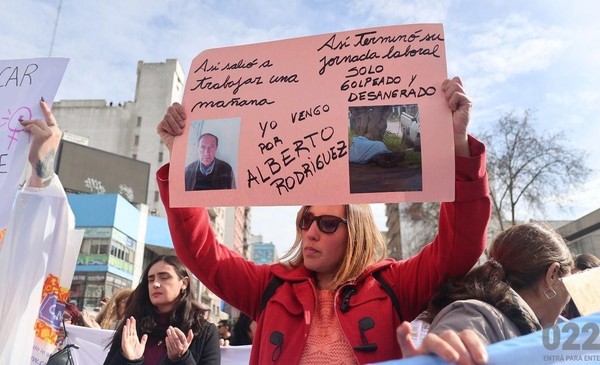 CAR
A
Así salió a
trabajar una
mañana
Así terminó su
jornada laboral
SOLO
GOLPEADO Y
DESANGRADO
YO VENGO
POR
ALBERTO
RODRÍGUEZ
022
ENTRÁ PARA ENTE